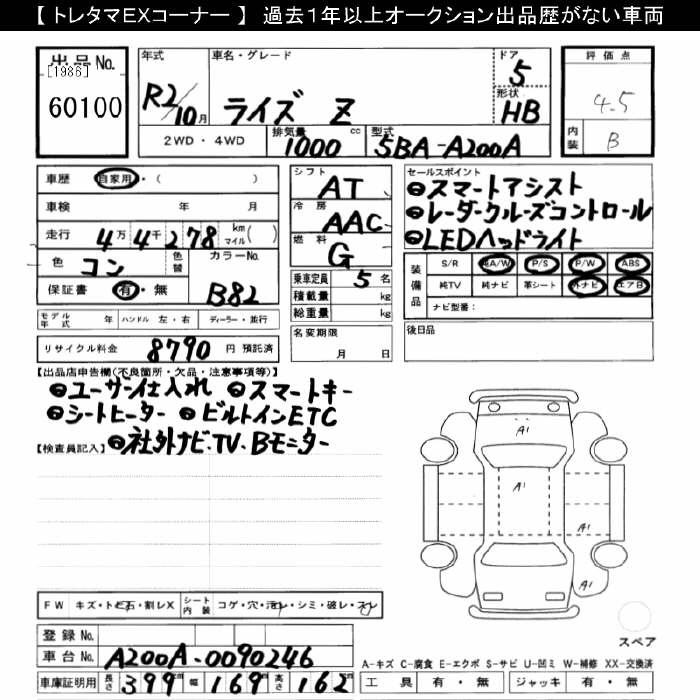 【 トレタマEXコーナー 】 過去１年以上オークション出品歴がない車両
出品No. [1986] 60100
年式 R2/10月
車名・グレード ライズ Z
ドア 5
形状 HB
評価点 4.5
内装 B
2WD・4WD
排気量 1000 cc
型式 5BA-A200A
車歴 自家用・( )
車検 年 月
走行 4万4千278 km マイル( )
色 コン
色替
カラーNo. B82
保証書 有・無
モデル年式 年
ハンドル 左・右
ディーラー・並行
リサイクル料金 8790 円 預託済
シフト AT
冷房 AAC
燃料 G
乗車定員 5 名
積載量 kg
総重量 kg
名変期限 月 日
セールスポイント
スマートアシスト
レーダークルーズコントロール
LEDヘッドライト
装備品
S/R A/W P/S P/W ABS
純TV 純ナビ 革シート 外ナビ エアB
ナビ型番:
後日品
【出品店申告欄(不良箇所・欠品・注意事項等)】
ユーザー仕入れ スマートキー
シートヒーター ビルトインETC
社外ナビ、TV、Bモニター
【検査員記入】
A1
A1
A1
A1
FW キズ・トビ石・割レX
シート内装 コゲ・穴・汚レ・シミ・破レ・スレ
登録No.
車台No. A200A-0090246
車庫証明用 長さ 399 幅 169 高さ 162
スペア
A-キズ C-腐食 E-エクボ S-サビ U-凹ミ W-補修 XX-交換済
工具 有・無 ジャッキ 有・無